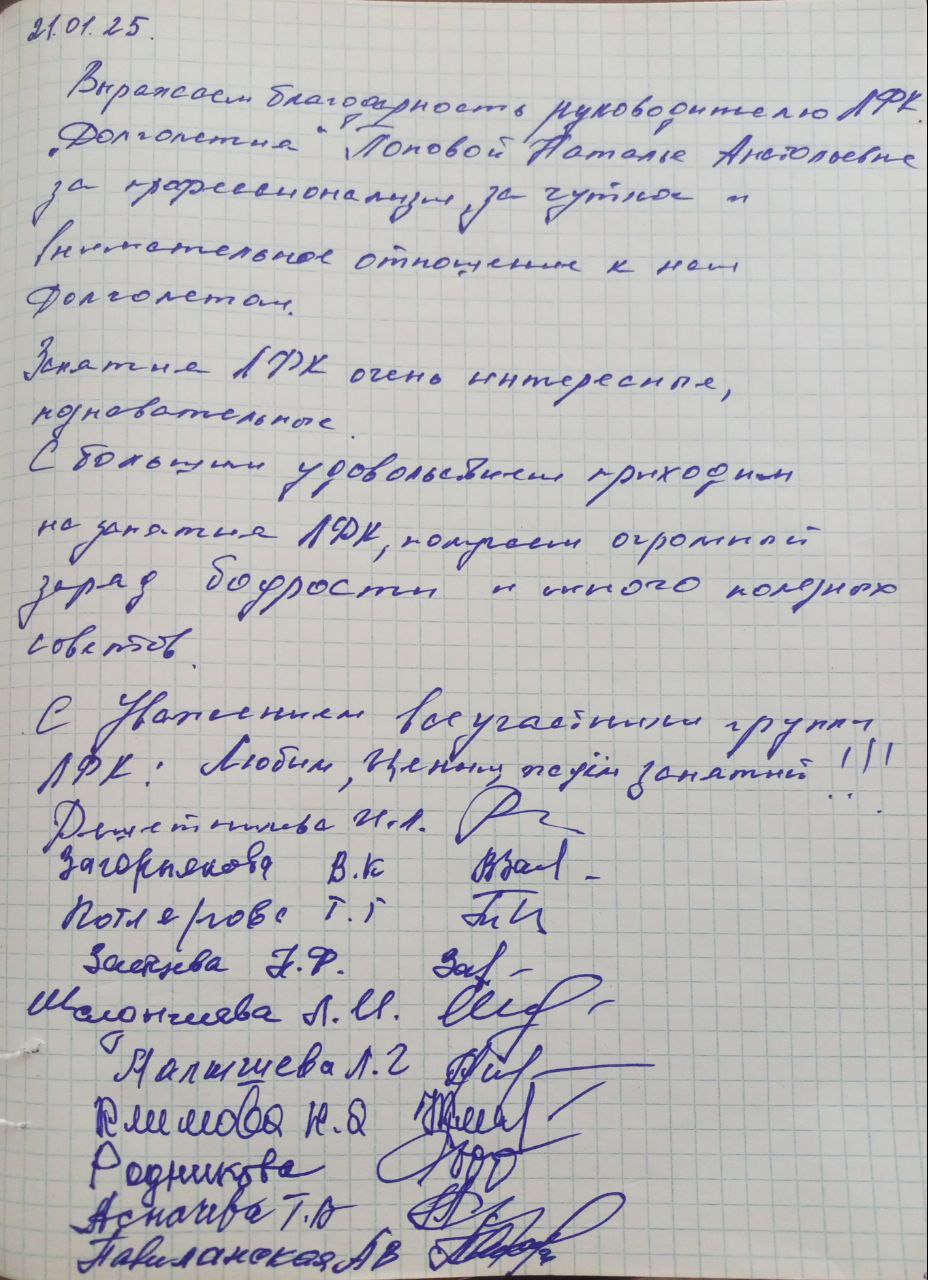 21.01.25.
Выражаем благодарность руководителю ЛФК
„Долголетия" Поповой Наталье Анатольевне
за профессионализм, за чуткое и
внимательное отношение к нам
Долголетам.
Занятия ЛФК очень интересные,
познавательные.
С большим удовольствием приходим
на занятия ЛФК, получаем огромный
заряд бодрости и много полезных
советов.
С Уважением все участники группы
ЛФК: Любим, Ценим, ждём занятий!!!
Решетникова Н.Л.
В.К
Т.Г
Зайцева Н.Ф.
Л.И.
Л.Г
Климова Н.А
Родникова
Т.В
АВ